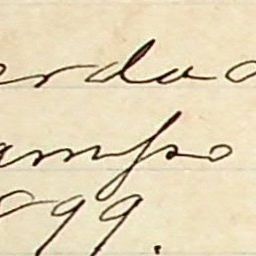 erdad
ampo
899.